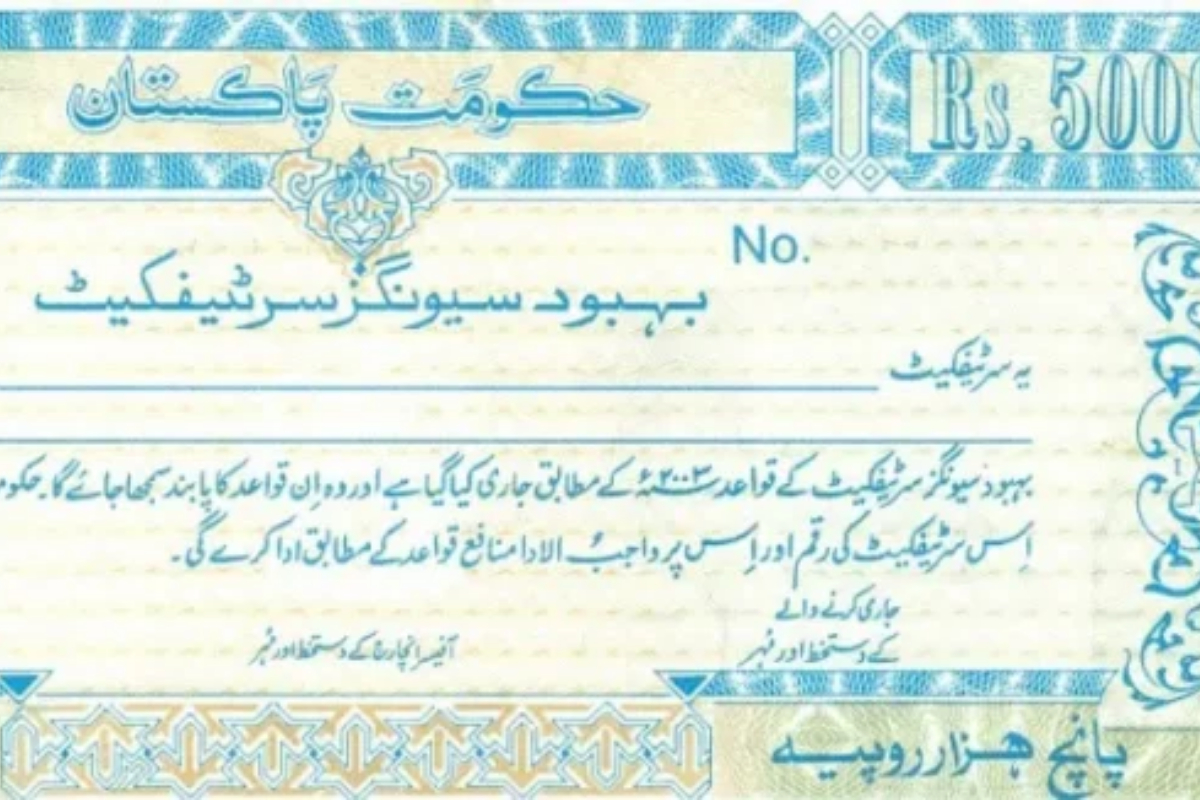 حکومَت پَاکستان
Rs. 500
No.
بہبود سیونگز سرٹیفکیٹ
یہ سرٹیفکیٹ
بہبود سیونگز سرٹیفکیٹ کے قواعد ۲۰۰۳ء کے مطابق جاری کیا گیا ہے اور وہ اِن قواعد کا پابند سمجھا جائے گا۔ حکوم
اِس سرٹیفکیٹ کی رقم اور اِس پر واجبُ الادا منافع قواعد کے مطابق ادا کرے گی۔
جاری کرنے والے
کے دستخط اور مُہر
آفیسر انچارج کے دستخط اور مُہر
پانچ ھزار روپیے